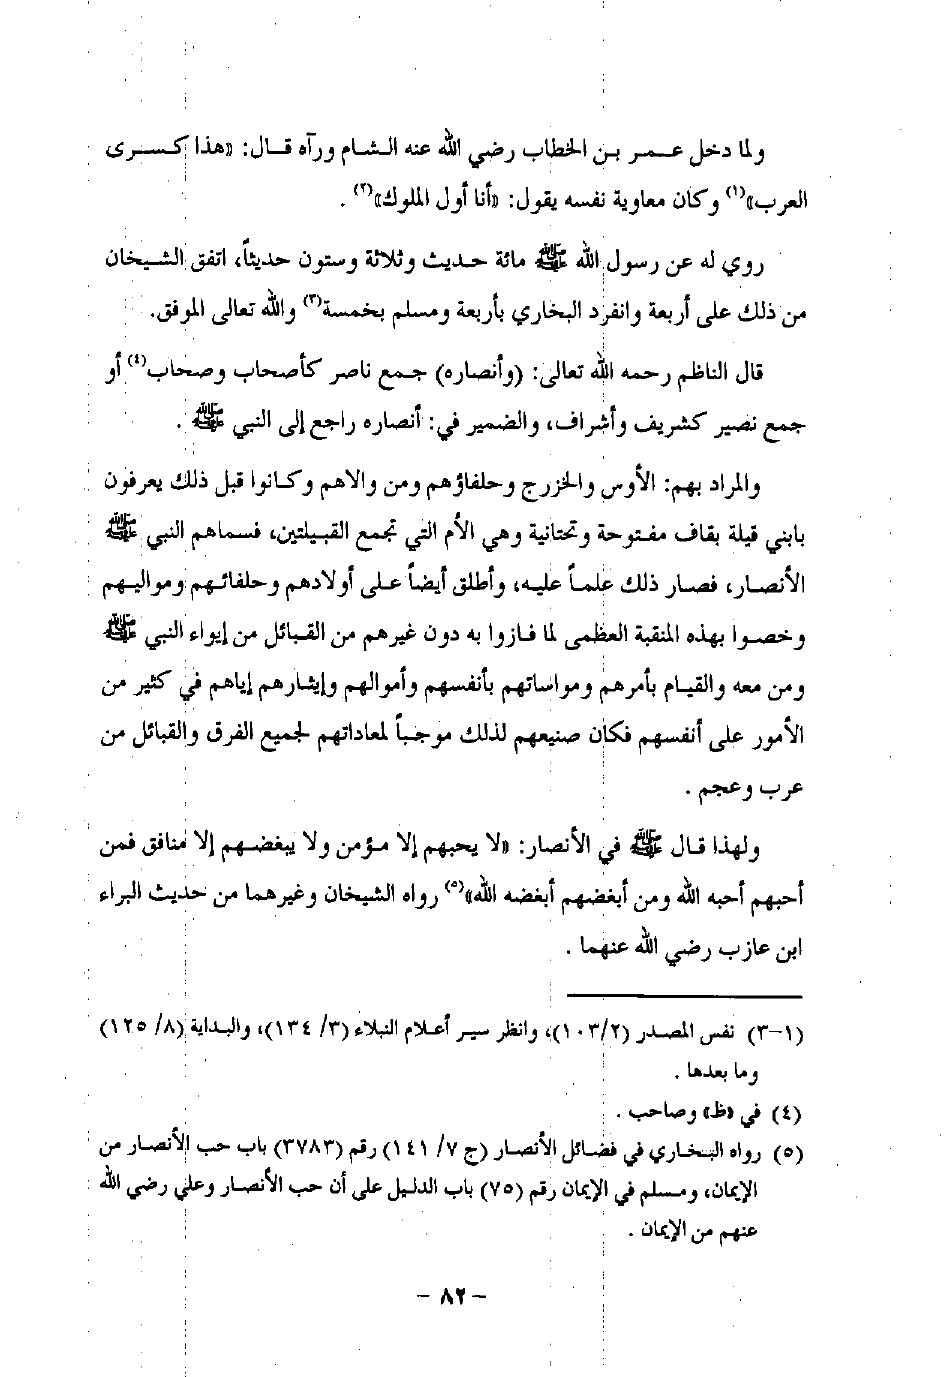 ولما دخل عمر بن الخطاب رضي الله عنه الشام ورآه قال: «هذا كسرى
العرب»(١) وكان معاوية نفسه يقول: «أنا أول الملوك»(٢) .
روي له عن رسول الله ﷺ مائة حديث وثلاثة وستون حديثاً، اتفق الشيخان
من ذلك على أربعة وانفرد البخاري بأربعة ومسلم بخمسة(٣) والله تعالى الموفق.
قال الناظم رحمه الله تعالى: (وأنصاره) جمع ناصر كأصحاب وصحاب(٤) أو
جمع نصير كشريف وأشراف، والضمير في: أنصاره راجع إلى النبي ﷺ .
والمراد بهم: الأوس والخزرج وحلفاؤهم ومن والاهم وكانوا قبل ذلك يعرفون
بابني قيلة بقاف مفتوحة وتحتانية وهي الأم التي تجمع القبيلتين، فسماهم النبي ﷺ
الأنصار، فصار ذلك علماً عليه، وأطلق أيضاً على أولادهم وحلفائهم ومواليهم
وخصوا بهذه المنقبة العظمى لما فازوا به دون غيرهم من القبائل من إيواء النبي ﷺ
ومن معه والقيام بأمرهم ومواساتهم بأنفسهم وأموالهم وإيثارهم إياهم في كثير من
الأمور على أنفسهم فكان صنيعهم لذلك موجباً لمعاداتهم لجميع الفرق والقبائل من
عرب وعجم .
ولهذا قال ﷺ في الأنصار: «لا يحبهم إلا مؤمن ولا يبغضهم إلا منافق فمن
أحبهم أحبه الله ومن أبغضهم أبغضه الله»(٥) رواه الشيخان وغيرهما من حديث البراء
ابن عازب رضي الله عنهما .
(١-٣) نفس المصدر (١٠٣/٢)، وانظر سير أعلام النبلاء (٣/ ١٣٤)، والبداية (٨/ ١٢٥)
وما بعدها .
(٤) في «ظ» وصاحب .
(٥) رواه البخاري في فضائل الأنصار (ج ٧/ ١٤١) رقم (٣٧٨٣) باب حب الأنصار من
الإيمان، ومسلم في الإيمان رقم (٧٥) باب الدليل على أن حب الأنصار وعلي رضي الله
عنهم من الإيمان .
- ٨٢ -